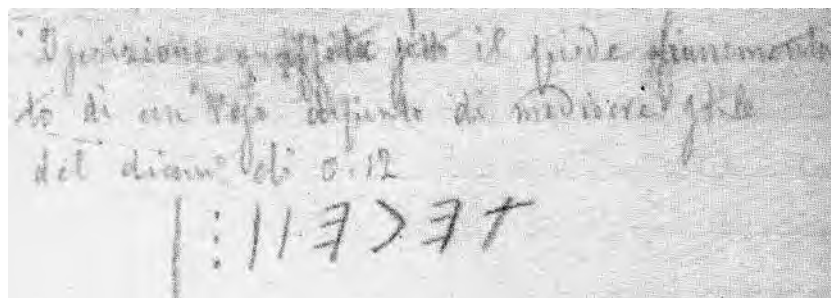 Iscrizione graffita sotto il piede frammenta
to di un vaso dipinto di mediocre stile
del diam° di 0.12
| ⋮ | | ∃ > ∃ †